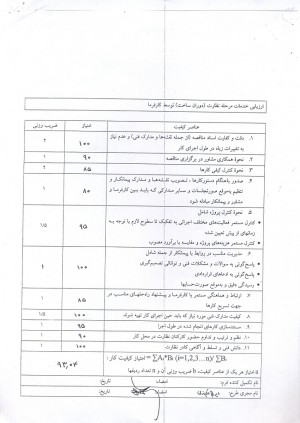 ارزیابی خدمات مرحله نظارت (دوران ساخت) توسط کارفرما
عناصر کیفیت امتیاز ضریب وزنی
۱. دقت و کفایت اسناد مناقصه (از جمله نقشه‌ها و مدارک فنی) و عدم نیاز
به تغییرات زیاد در طول اجرای کار ۱۰۰ ۲
۲. نحوه همکاری مشاور در برگزاری مناقصه ۹۰ ۱
۳. نحوه کنترل کیفی کارها ۸۵ ۲
۴. صدور بههنگام دستورکارها، تصویب نقشه‌ها و مدارک پیمانکار و
تنظیم به‌موقع صورتجلسات و سایر مدارکی که باید بین کارفرما و
مشاور و پیمانکار مبادله شود ۸۰ ۱
۵. نحوه کنترل پروژه شامل
کنترل مستمر فعالیت‌های مختلف اجرائی به تفکیک تا سطوح لازم با توجه به
زمانهای از پیش تعیین شده
کنترل مستمر هزینه‌های پروژه و مقایسه با برآورد مصوب ۹۵ ۱/۵
۶. مدیریت مناسب در روابط با پیمانکار از جمله شامل
پاسخ‌گوئی به سوالات و مشکلات فنی و توانائی تصمیم‌گیری
پاسخ‌گوئی به ادعاهای قراردادی
رسیدگی دقیق و به‌موقع صورت‌حسابها ۱۰۰ ۱
۷. ارتباط و هماهنگی مستمر با کارفرما و پیشنهاد راه‌حلهای مناسب در
جهت تسریع کارها ۸۵ ۱
۸. کیفیت مدارک فنی مورد نیاز که باید حین اجرای کار تهیه شوند. ۱۰۰ ۱/۵
۹. مستندسازی کارهای انجام شده در طول اجرا ۹۵ ۱
۱۰. نظم و ترتیب و تداوم حضور کارکنان نظارت در محل کار ۹۰ ۱
۱۱. دانش فنی و تسلط و آگاهی کادر نظارت. ۱۰۰ ۱
امتیاز کیفیت کار: = ∑Aᵢ*Bᵢ (i=1,2,3...n)/ ∑Bᵢ ۹۳,۰۴
A امتیاز هر یک از عناصر کیفیت، B ضریب وزنی آن و n تعداد ردیفها
نام تکمیل کننده فرم: امضاء تاریخ:
نام مجری طرح: امضاء تاریخ: